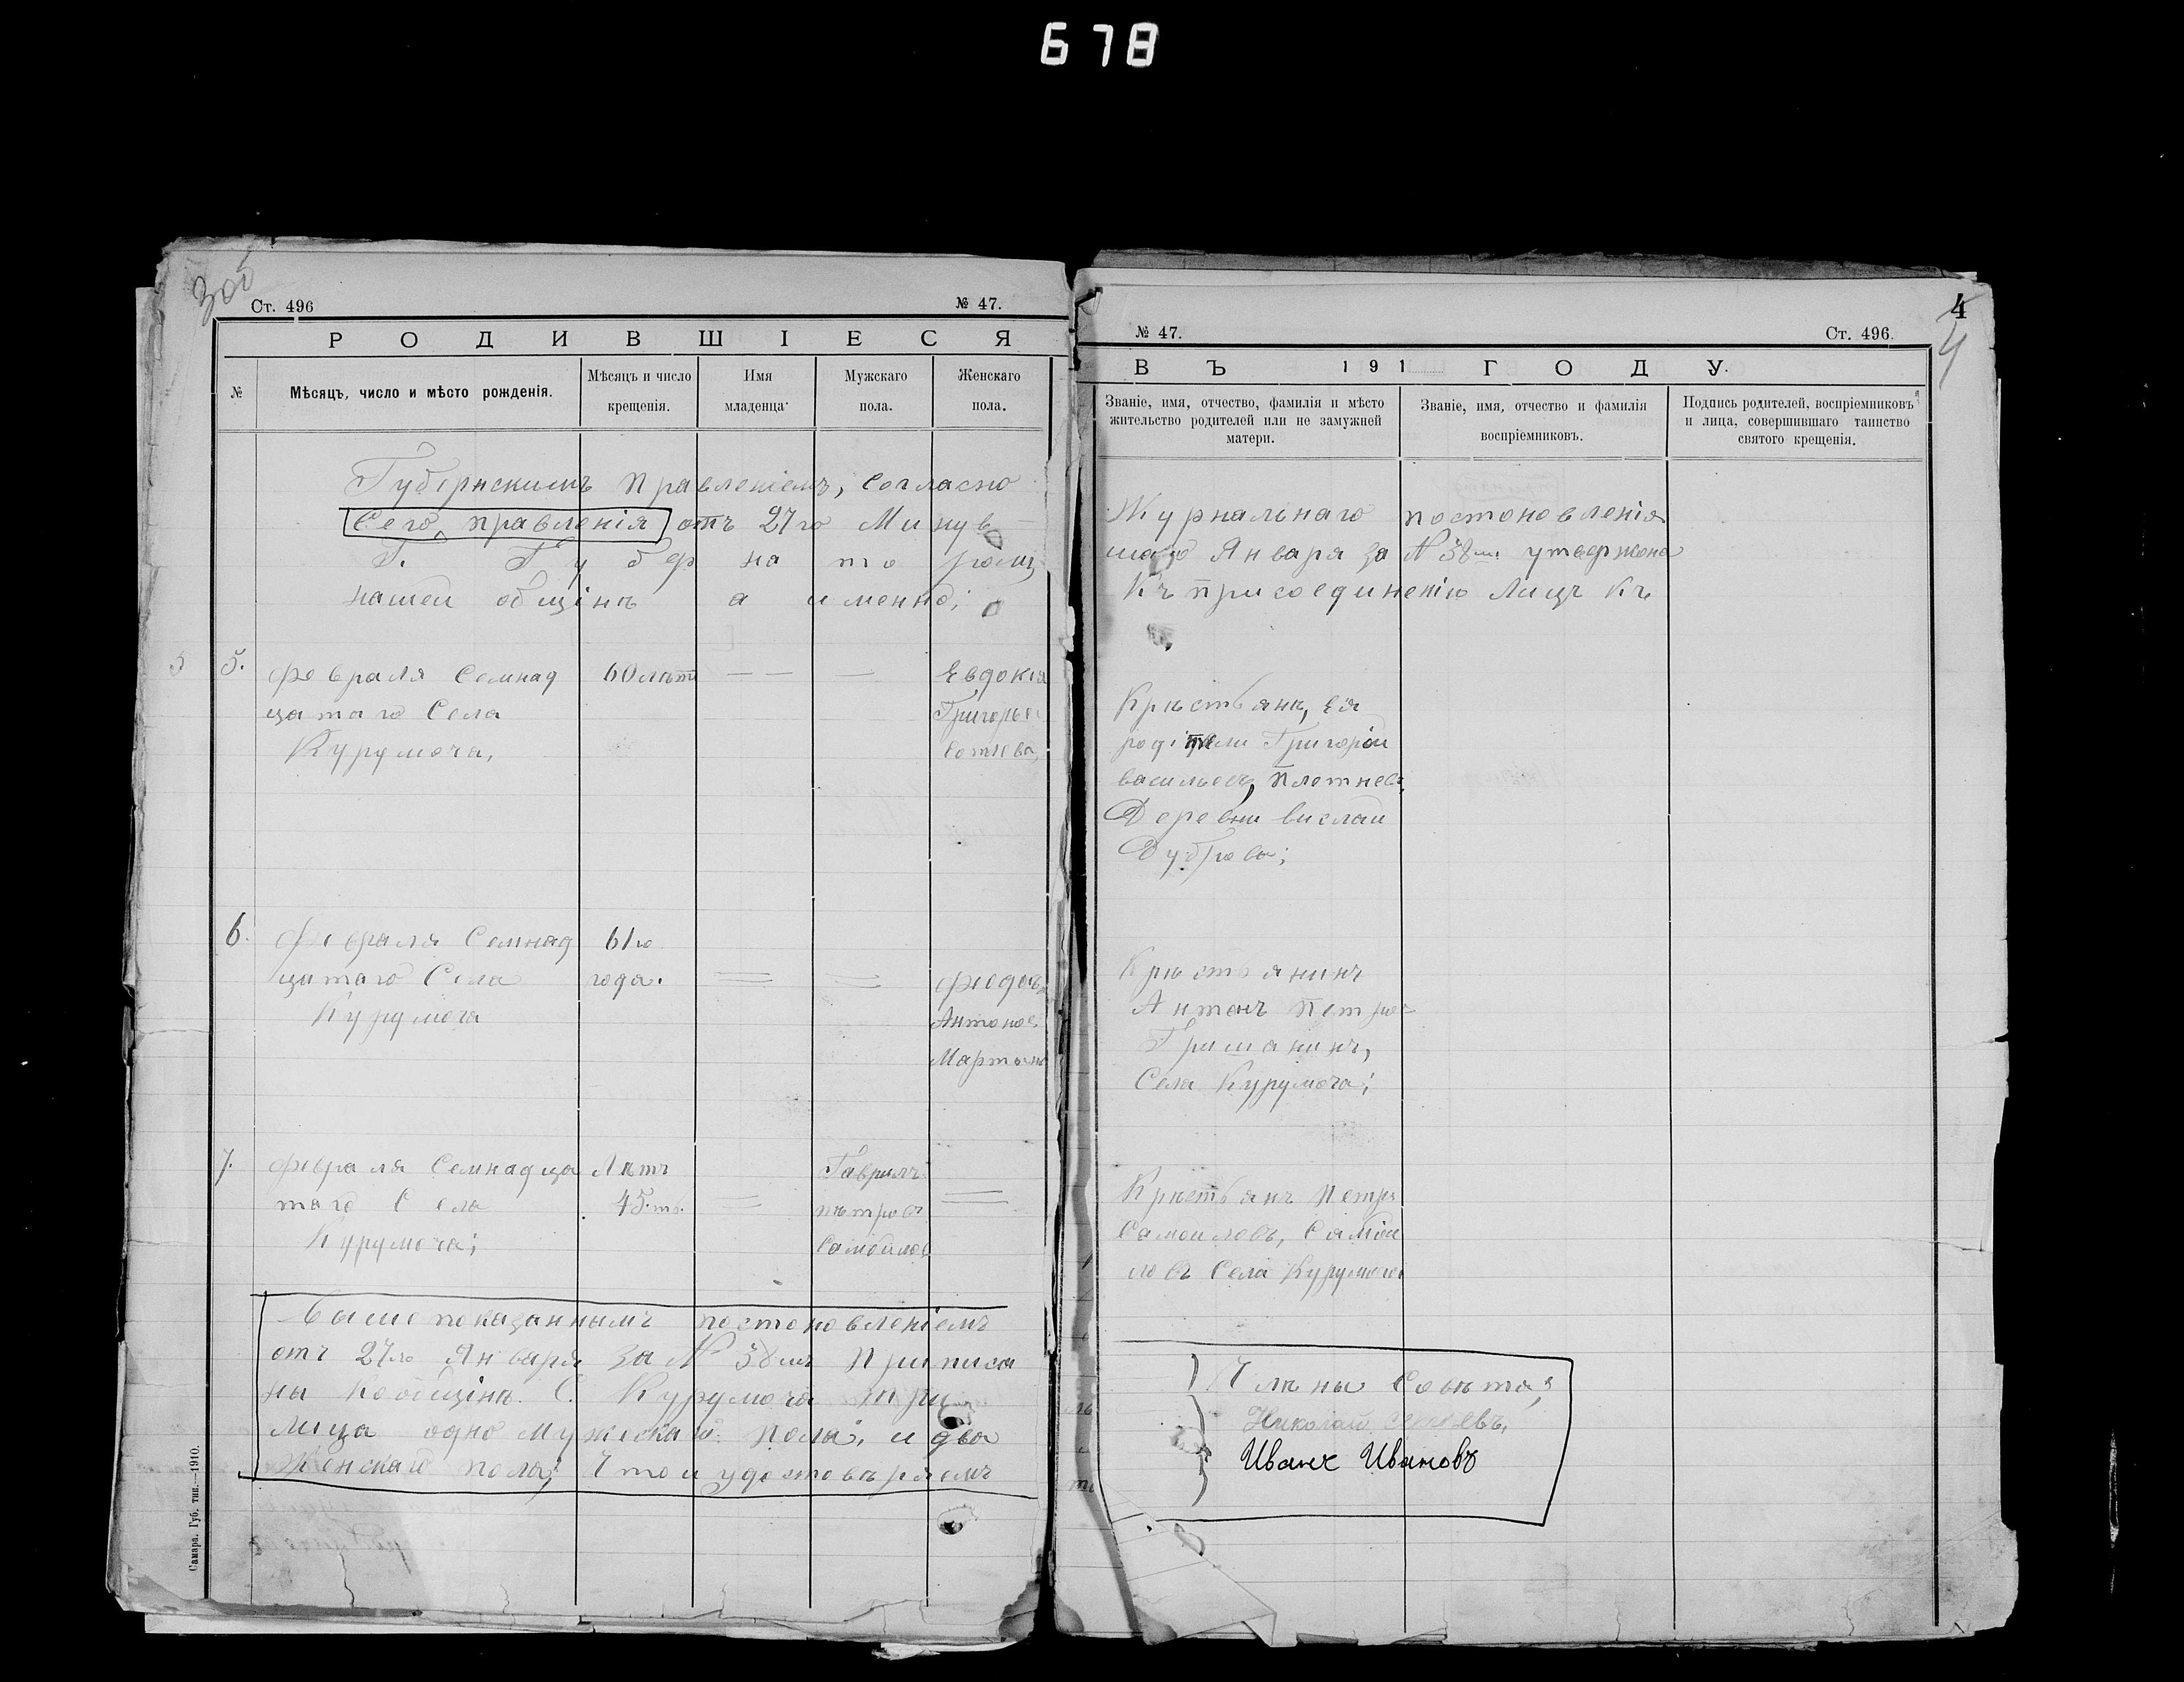 678
Ст. 496
№ 47.
РОДИВШІЕСЯ
№
Мѣсяцъ, число и мѣсто рожденія.
Мѣсяцъ и число
крещенія.
Имя
младенца
Мужскаго
пола.
Женскаго
пола.
Губернскимъ Правленіемъ, Согласно
Сего правленія отъ 27го Минув
Г. Губернато
нашей общінѣ а именно;
5.
февраля Семнад
цатаго Села
Курумоча,
60 лѣтъ
Евдокія
Григорье
6.
Февраля Семнад
цатаго Села
Курумоча
61го
года.
Антонов
Мартын
7.
февраля Семнадца
таго Села
Курумоча;
Лѣтъ
45.ть.
Гаврилъ
пѣтровъ
Самойлов
Вышепоказаннымъ постоновленіемъ
отъ 27го Января за № 38мъ Приписа
ны Кообщінѣ С. Курумоча три
лица одно Мужскаго пола; и два
Женскаго пола; Что и удостовѣряемъ
Самара. Губ. тип.—1910.
4
4
№ 47.
Ст. 496.
ВЪ 191 ГОДУ.
Званіе, имя, отчество, фамилія и мѣсто
жительство родителей или не замужней
матери.
Званіе, имя, отчество и фамилія
воспріемниковъ.
Подпись родителей, воспріемниковъ
и лица, совершившаго таинство
святого крещенія.
Журнальнаго постоновленія
шаго Января за № 38мъ утвержона
Къ присоединенію Лицъ Къ
Крѣстьянѣ, Ея
родітели Григорій
васильевъ, Плотневъ,
Деревни
Крѣстьянинъ
Антонъ Петро
Гришанинъ,
Села Курумоча;
Крѣстьянъ Петръ
Самоиловъ, Самои
ловъ Села Курумоча
Члѣны Совѣта;
Николай
Иванъ Ивановъ